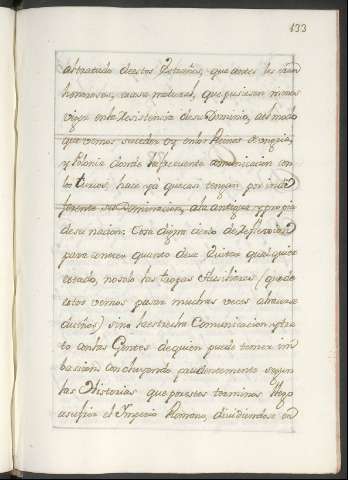 133
al tratado de estos Estraños, que antes les eran
honorosos, era cosa natural, que pusiesen menos
vigor en la Resistencia de su Dominio, al modo
que vemos suceder oy en los Reinos de Ungria,
y Polonia donde la frecuente comunicacion con
los turcos, hace ya que casi tengan por indi
ferente su Dominacion, a la antigua y propia
de su nacion. Cosa digna cierto de Reflexion
para conocer quanto deve Quitar qualquier
estado, no solo las tropas Auxiliares (que de
estos vemos pasar muchas veces a hacerse
dueños) sino la estrecha Comunicacion y tra
to con las Gentes de quien puede temer in
basion concluyendo prudentemente segun
las Historias que por estos terminos llego
a sufrir el Imperio Romano, dividiendose en